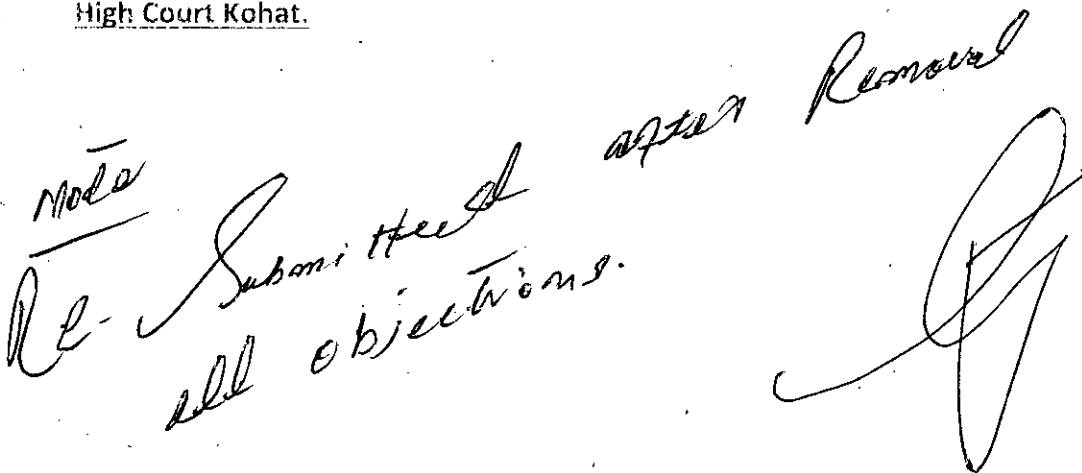 High Court Kohat.
Note
Re-Submitted after Removal
all objections.